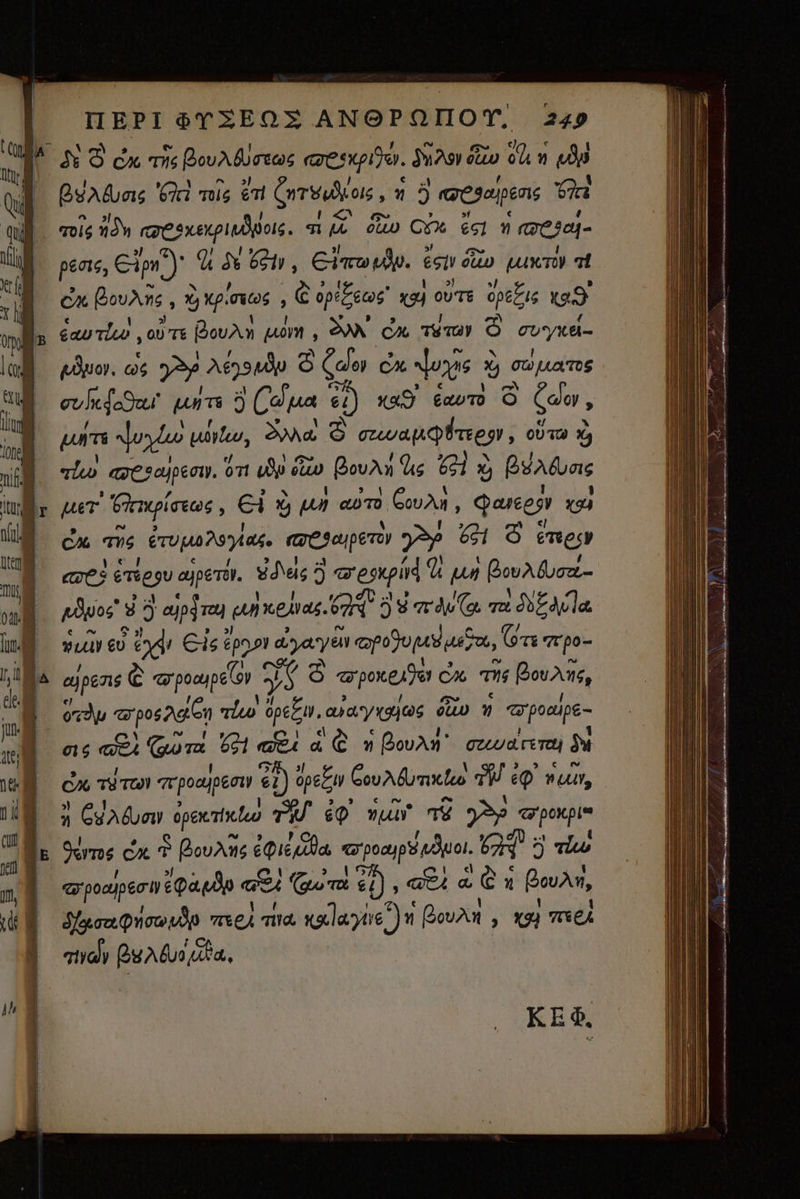 ΠΕΡΙ ΦΥΣΕΩΣ ΑΝΘΡΩΠΟΥ. 249
δὲ τὸ ἐκ τῆς βουλεύσεως προκριθέν. δῆλον οὖν ὅτι ἡ μὲν
βούλευσις ἐπὶ τοῖς ἔτι ζητουμένοις, ἡ δὲ προαίρεσις ἐπὶ
τοῖς ἤδη προκεκριμένοις. τί μὲν οὖν οὐκ ἔστι ἡ προαί-
ρεσις, εἴρηται· τί δὲ ἐστιν, εἴπωμεν. ἔστιν οὖν μικτόν τι
ἐκ βουλῆς, καὶ κρίσεως, καὶ ὀρέξεως· καὶ οὔτε ὄρεξις καθ'
ἑαυτὴν, οὔτε βουλὴ μόνη, ἀλλ' ἐκ τούτων τὸ συγκεί-
μενον. ὡς γὰρ λέγομεν τὸ ζῶον ἐκ ψυχῆς καὶ σώματος
συγκεῖσθαι· μήτε δὲ σῶμα εἶναι καθ' ἑαυτὸ τὸ ζῶον,
μήτε ψυχὴν μόνην, ἀλλὰ τὸ συναμφότερον, οὕτω καὶ
τὴν προαίρεσιν. ὅτι μὲν οὖν βουλή τις ἐστὶ καὶ βούλευσις
μετ' ἐπικρίσεως, εἰ καὶ μὴ αὐτὸ βουλὴ, φανερὸν καὶ
ἐκ τῆς ἐτυμολογίας. προαιρετὸν γὰρ ἐστι τὸ ἕτερον
πρὸ ἑτέρου αἱρετόν. οὐδεὶς δὲ προκρίνει τι μὴ βουλευσά-
μενος· οὐ δὲ αἱρεῖται μὴ κρίνας. ἐπεὶ δὲ οὐ πάντα τὰ δόξαντα
ἡμῖν εὖ ἔχειν εἰς ἔργον ἀγαγεῖν προθυμούμεθα, τότε προ-
αίρεσις καὶ προαιρετὸν γίνεται τὸ προκριθὲν ἐκ τῆς βουλῆς,
ὅταν προσλάβῃ τὴν ὄρεξιν. ἀναγκαίως οὖν ἡ προαίρε-
σις περὶ ταῦτά ἐστι περὶ ἃ καὶ ἡ βουλή· συνάγεται δὴ
ἐκ τούτων προαίρεσιν εἶναι ὄρεξιν βουλευτικὴν τῶν ἐφ' ἡμῖν,
ἢ βούλευσιν ὀρεκτικὴν τῶν ἐφ' ἡμῖν· τοῦ γὰρ προκρι-
θέντος ἐκ τῆς βουλῆς ἐφιέμεθα προαιρούμενοι. ἐπεὶ δὲ τὴν
προαίρεσιν ἔφαμεν περὶ ταῦτὰ εἶναι, περὶ ἃ καὶ ἡ βουλὴ,
διασαφήσωμεν περὶ τίνα καταγίνεται ἡ βουλὴ, καὶ περὶ
τίνων βουλευόμεθα.
ΚΕΦ.